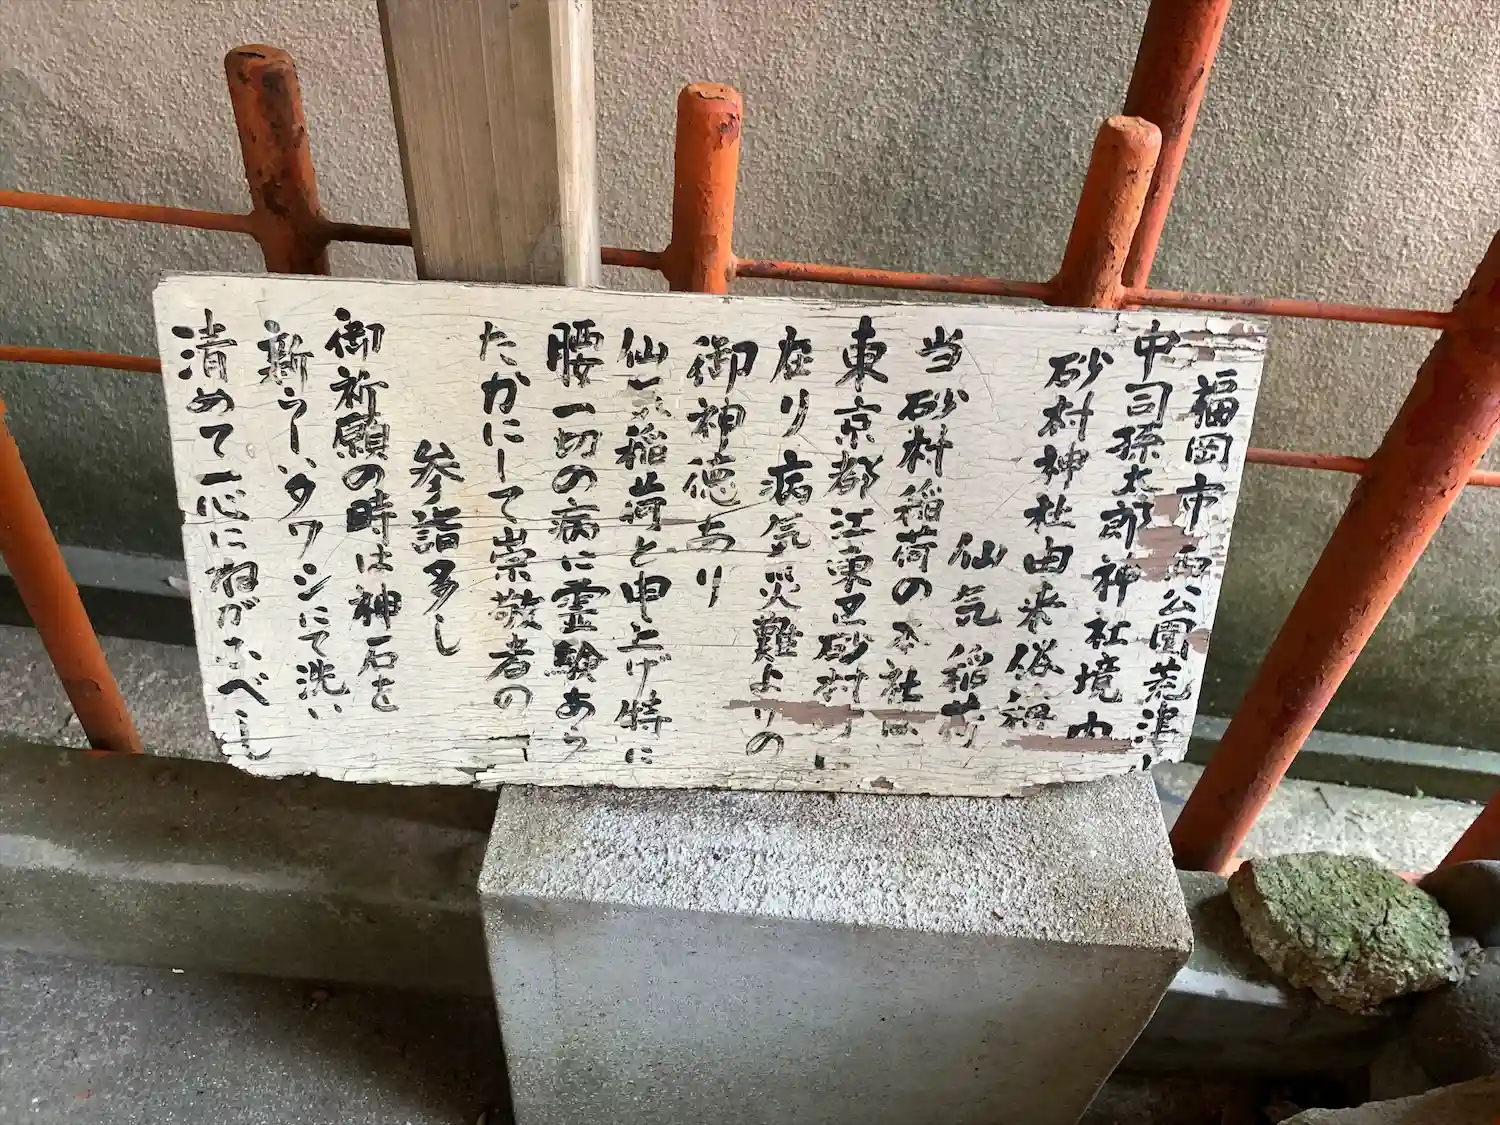 福岡市西公園荒津
中司孫太郎神社境内
砂村神社由来俗称
仙気稲荷
当砂村稲荷の本社は
東京都江東区砂村に
在り病気災難よりの
御神徳あり
仙気稲荷と申上げ特に
腰一切の病に霊験あら
たかにして崇敬者の
参詣多し
御祈願の時は神石を
新らしいタワシにて洗い
清めて一心にねがふべし